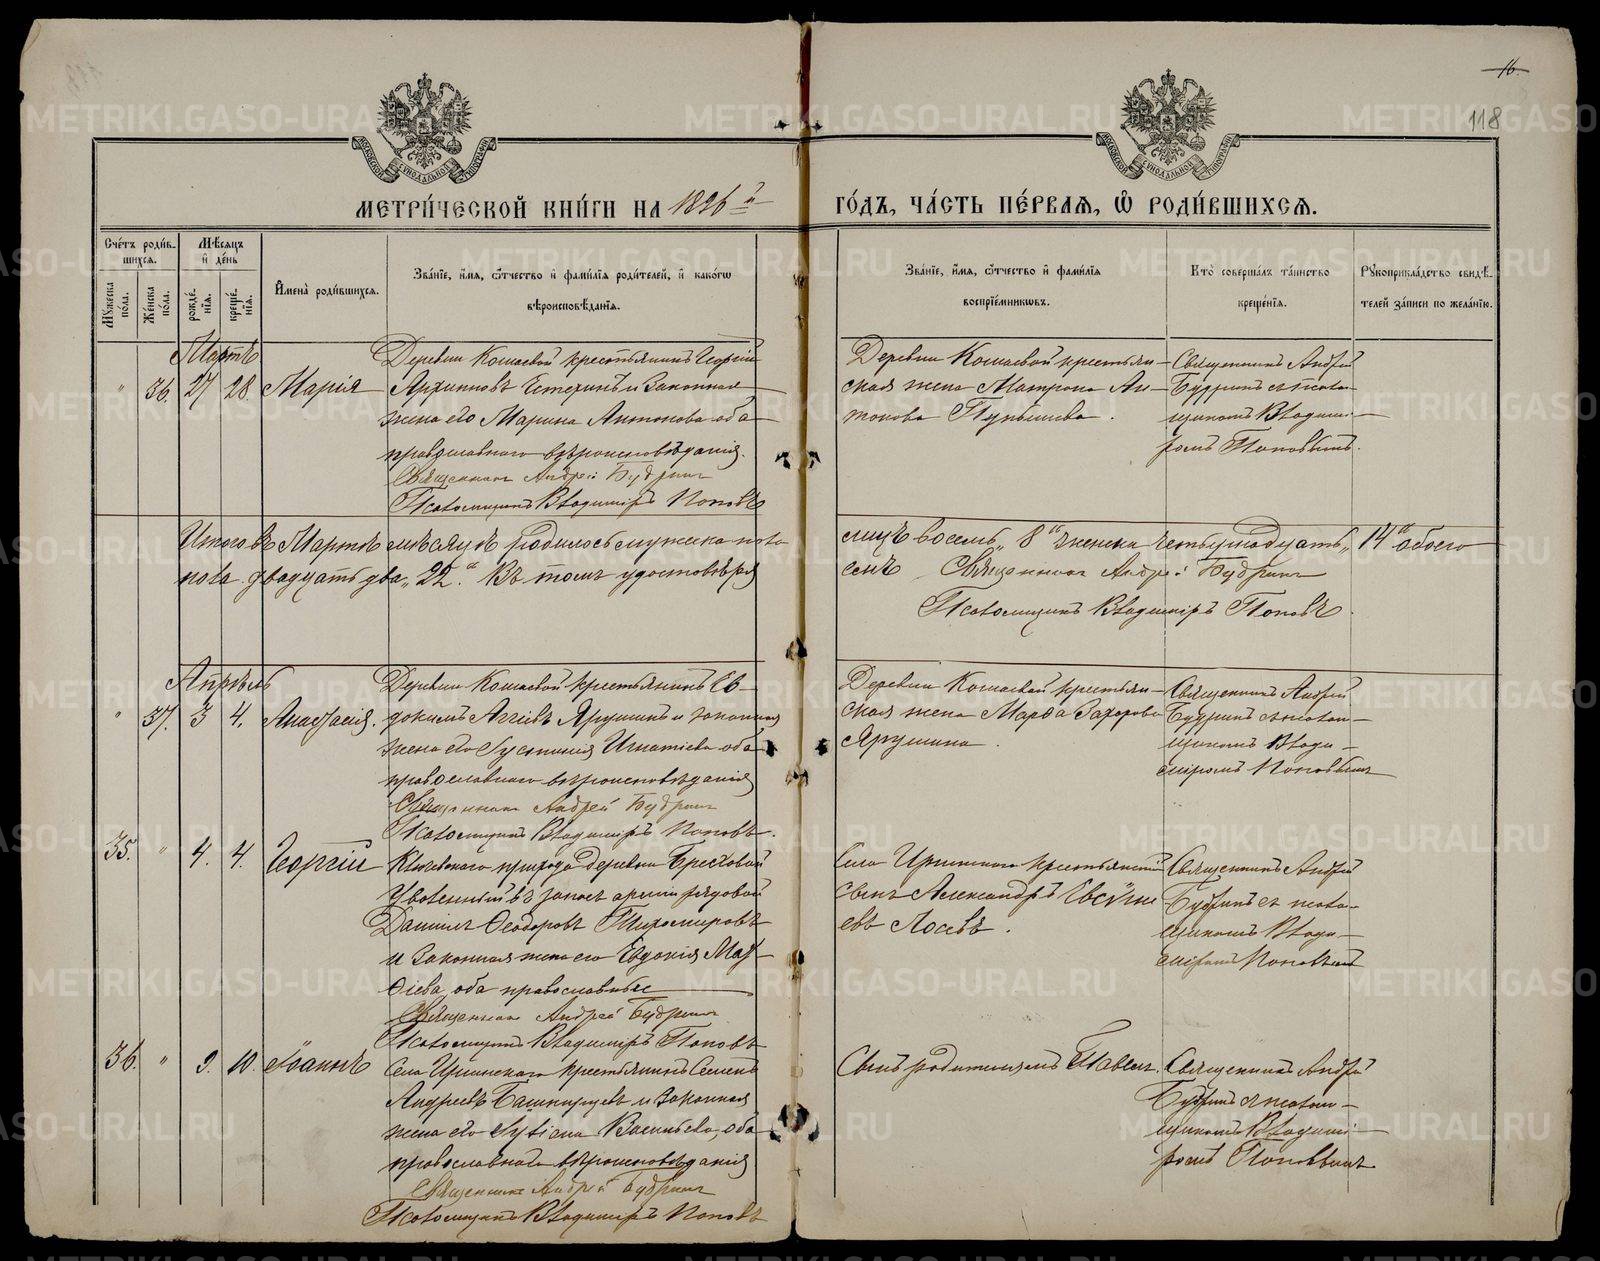 16.
118
МЕТРИ́ЧЕСКОЙ КНИ́ГИ НА 1896й ГО́ДЪ, ЧА́СТЬ ПЕ́РВАЯ, Ѡ РОДИ́ВШИХСЯ.
Сче́тъ роди́в-
шихся.
Мꙋжеска по́ла.
Же́нска по́ла.
Мѣ́сяцъ и де́нь
рожде́-
нїя.
креще́-
нїя.
И҆мена̀ роди́вшихся.
Зва́нїе, и҆́мя, ѻ҆́тчество и҆ фами́лїя роди́телей, и҆ како́гѡ
вѣроисповѣ́данїя.
Зва́нїе, и҆́мя, ѻ҆́тчество и҆ фами́лїя
воспрїе́мникѡвъ.
Кто̀ соверша́лъ та́инство
креще́нїя.
Рꙋкоприкла́дство свидѣ́-
телей за́писи по жела́нїю.
Мартъ
" 36. 27 28 Марія
Деревни Кошаевой крестьянинъ Георгій
Архиповъ Четехинъ и законная
жена его Марина Антонова оба
православнаго вѣроисповѣданія.
Священникъ Андрей Будринъ
Псаломщикъ Владиміръ Поповъ
Деревни Кошаевой крестьян-
ская жена Матрона Ан-
тонова
Священникъ Андрей
Будринъ съ псалом-
щикомъ Владимі-
ромъ Поповымъ.
Итого въ Мартѣ мѣсяцѣ родилось мужеска пола
восемь „8“ женска четырнадцать „14“ обоего
пола двадцать два „22.“ Въ томъ удостовѣря
емъ Священникъ Андрей Будринъ
Псаломщикъ Владиміръ Поповъ.
Апрѣль
" 37. 3 4. Анастасія.
Деревни Кошаевой крестьянинъ Ев-
докимъ Аггіевъ Ярушинъ и законная
жена его Іустинія Игнатіева оба
православнаго вѣроисповѣданія
Священникъ Андрей Будринъ
Псаломщикъ Владиміръ Поповъ.
Деревни Кошаевой крестьян-
ская жена Марѳа Захарова
Ярушина.
Священникъ Андрей
Будринъ съ псалом-
щикомъ Влади-
міромъ Поповымъ
35. " 4. 4. Георгій
Ключевскаго прихода деревни Бреховой
уволенный въ запасъ арміи рядовой
Даніилъ Ѳеодоровъ Тихомировъ
и законная жена его Евдокія Мат-
ѳіева, оба православные
Священникъ Андрей Будринъ
Псаломщикъ Владиміръ Поповъ
Села Ирбинскаго крестьянскій
сынъ Александръ
евъ Лосевъ.
Священникъ Андрей
Будринъ съ псалом-
щикомъ Влади-
міромъ Поповымъ
36. " 9. 10. Іоаннъ
Села Ирбинскаго крестьянинъ Семенъ
Андреевъ Башкирцевъ и законная
жена его Іуліана Васильева, оба
православнаго вѣроисповѣданія
Священникъ Андрей Будринъ
Псаломщикъ Владиміръ Поповъ
Сынъ родителямъ Павелъ.
Священникъ Андрей
Будринъ съ псалом-
щикомъ Владимі-
ромъ Поповымъ
METRIKI.GASO-URAL.RU